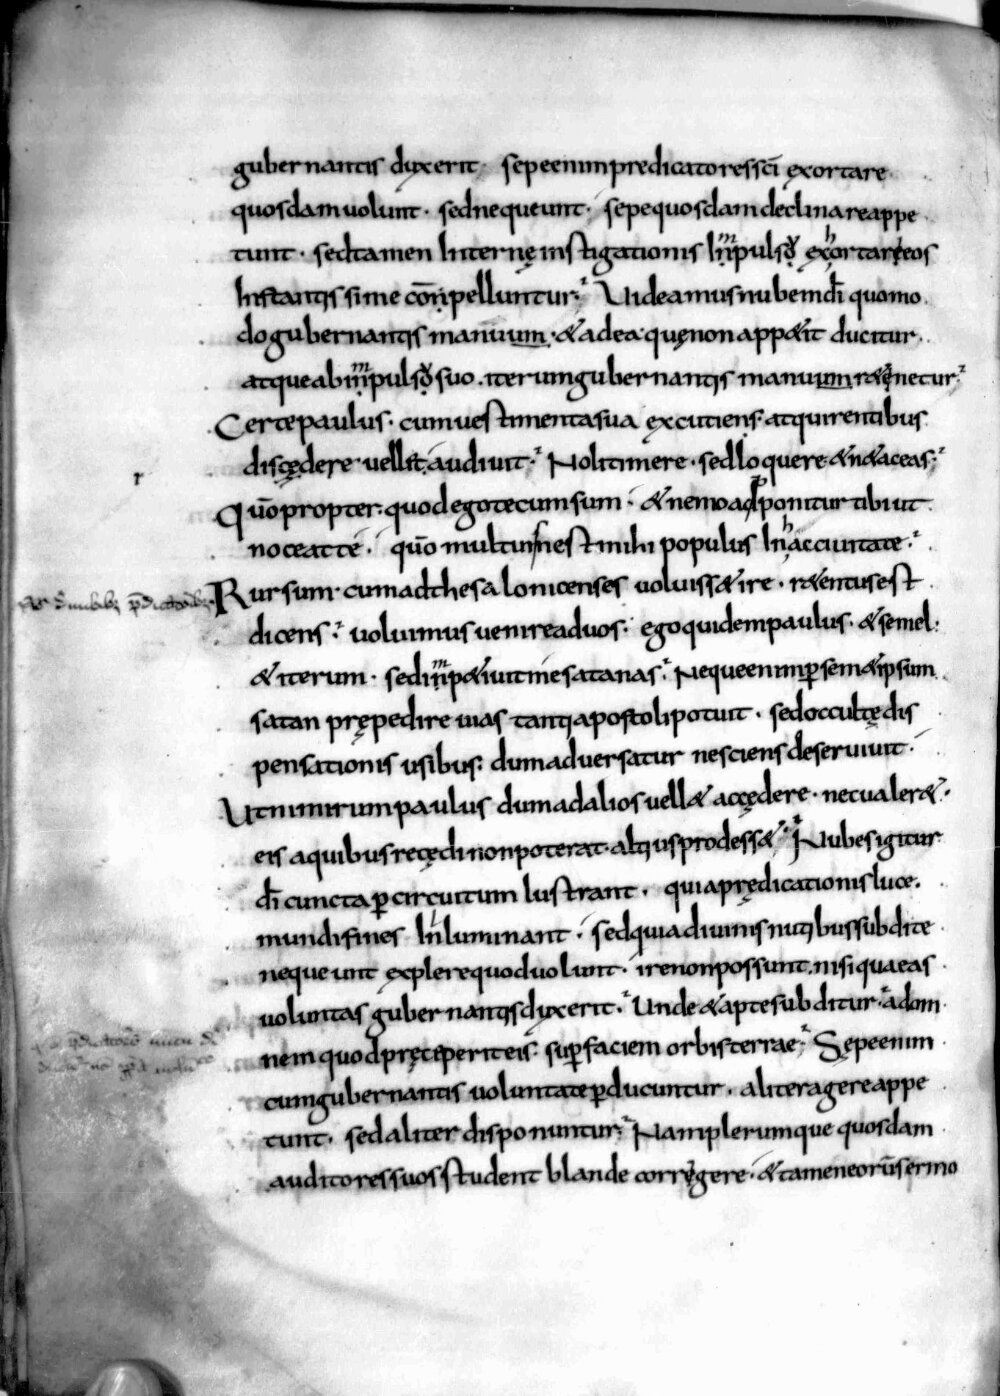 gubernantis dyxerit· sepe enim predicatores sci exortare·
quosdam uolunt· sed nequeunt· sepe quosdam declinare appe
tunt· sed tamen Internę instigationis Inpulso exortare eos
Instantissime conpelluntur· Uideamus nubem di quomo
do gubernantis manuum· & ad ea quę non app&it ducitur·
atque ab inpulso suo· iterum gubernantis manuum r&inetur·
Certe paulus· cum uestimenta sua excutiens· atquirentibus
discędere uellet audiuit· Noli timere· sed loquere & ne taceas·
Quō propter quod ego tecum sum· & nemo adponitur tibi ut
noceat te· quō multus est mihi populus In hac ciuitate·
Rursum cum ad thesalonicenses uoluiss& ire· r&entus est
dicens· uoluimus uenire ad uos· ego quidem paulus· & semel·
& iterum· sed inp&iuit me satanas· Neque enim p̄ sem&ipsum
satan prępedire uias tanti apostoli potuit· sed occultę dis
pensationis usibus· dum aduersatur nesciens deseruiuit·
Ut nimirum paulus dum ad alios uell& accędere· nec ualer&·
eis a quibus recędi non poterat· altius prodess&· Nubes igitur
dī cuncta p̄ circuitum lustrant· quia prędicationis luce·
mundi fines Inluminant· sed quia diuinis nutibus subdite
nequeunt explere quod uolunt· ire non possunt· nisi qua eas
uoluntas gubernantis dyxerit· Unde & apte subditur· ad om
nem quod pręceperit eis· sup̄ faciem orbis terrae· Sępe enim
cum gubernantis uoluntate p̄ducuntur· aliter agere appe
tunt· sed aliter disponuntur· Nam plerumque quosdam
auditores suos student blande corregere· & tamen eorū sermo